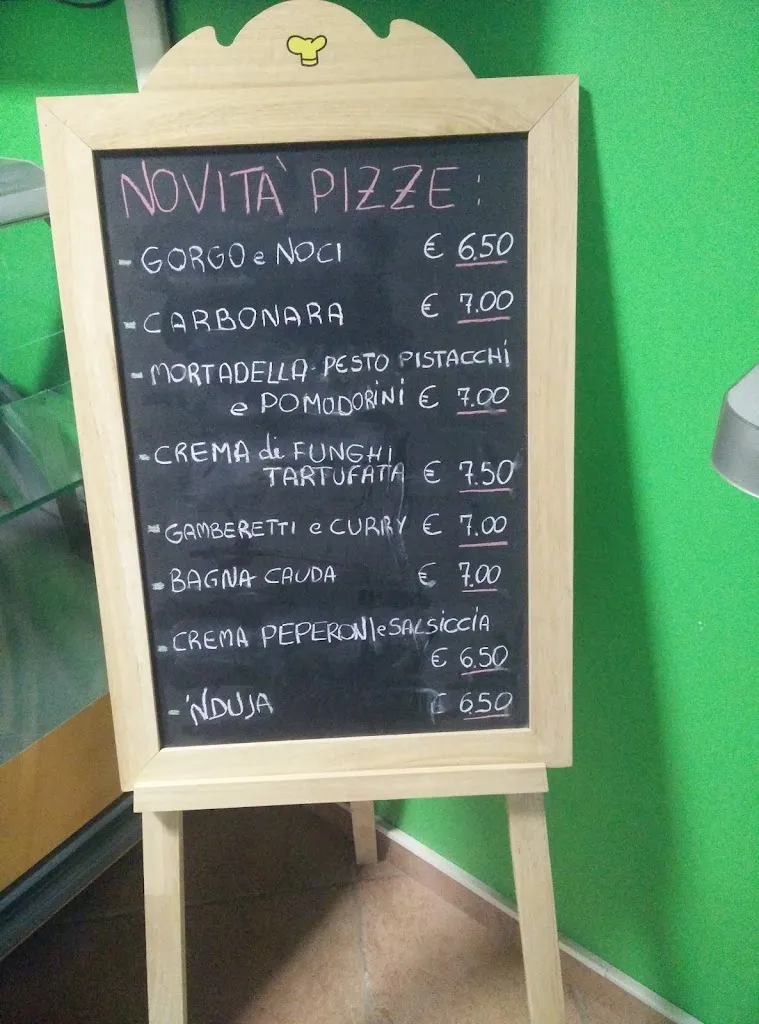 NOVITÀ PIZZE:
- GORGO e NOCI € 6.50
- CARBONARA € 7.00
- MORTADELLA- PESTO PISTACCHI
e POMODORINI € 7.00
- CREMA di FUNGHI
TARTUFATA € 7.50
- GAMBERETTI e CURRY € 7.00
- BAGNA CAUDA € 7.00
- CREMA PEPERONI e SALSICCIA
€ 6.50
- 'NDUJA € 6.50